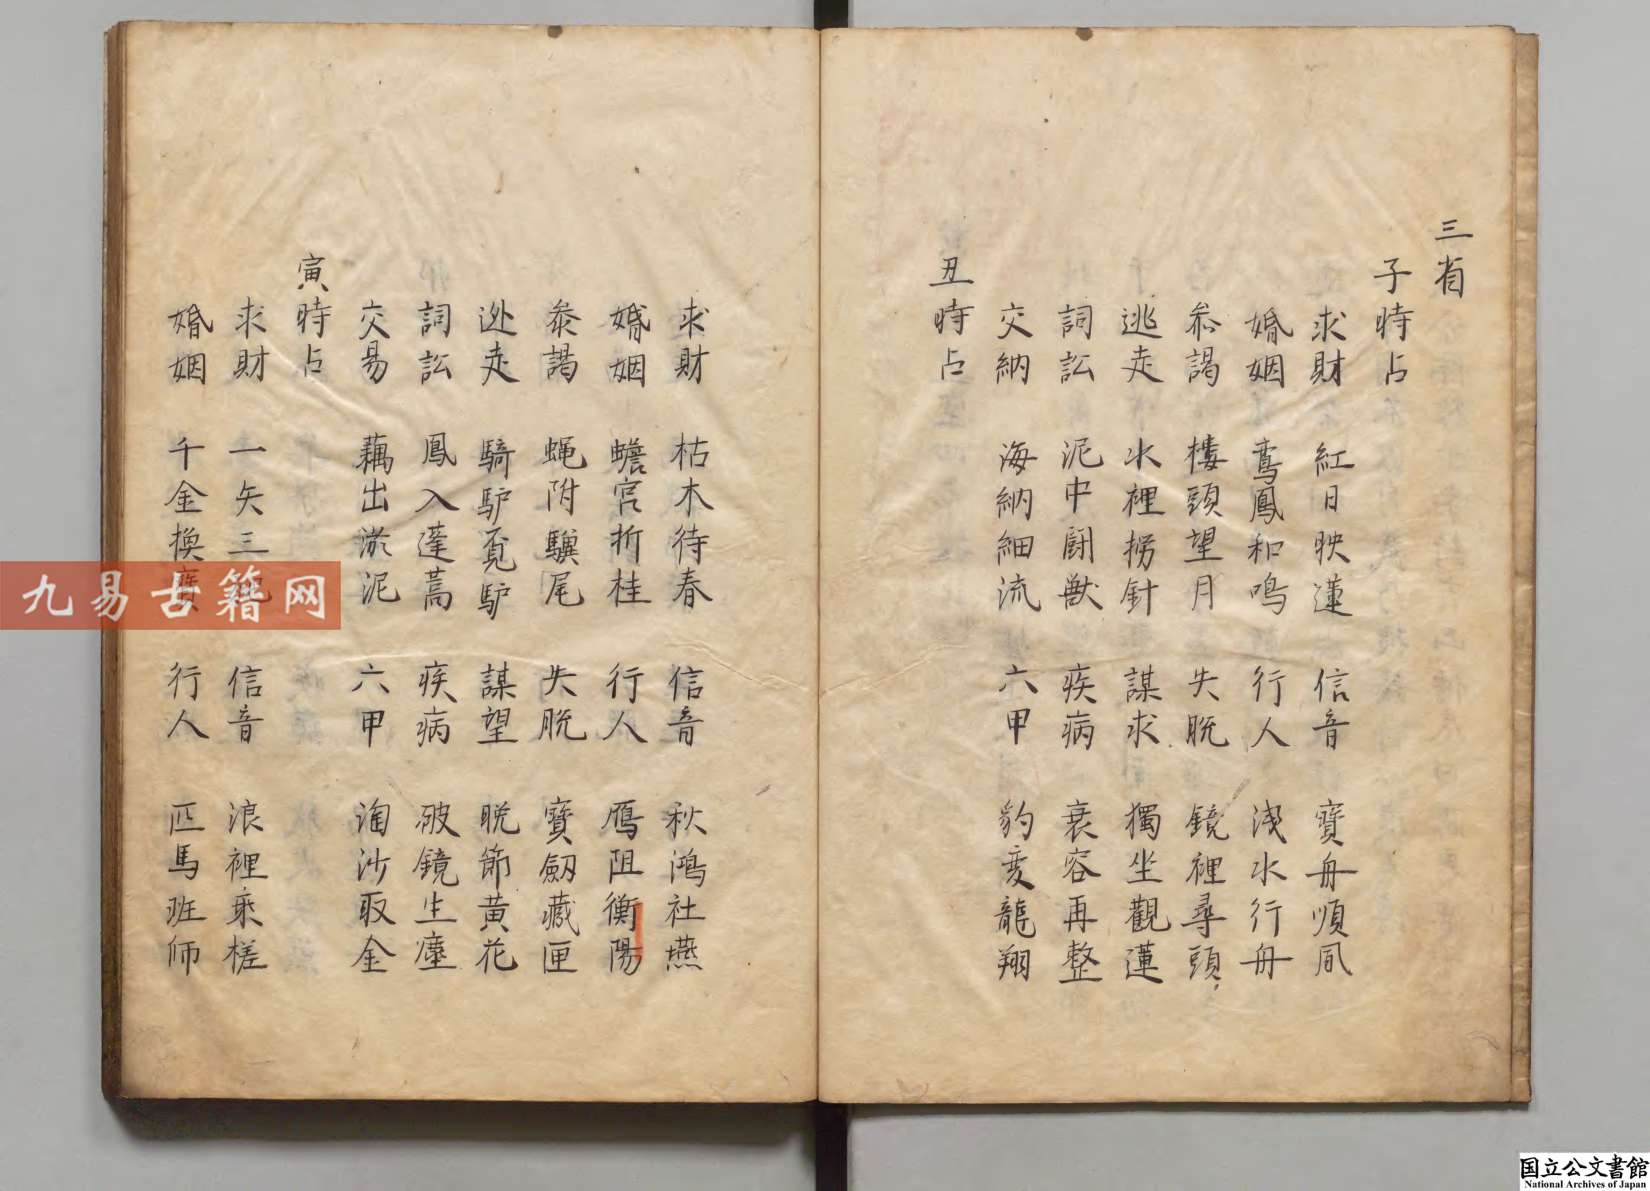 三省
子時占
求財 紅日映蓮 信音 寶舟順風
婚姻 鸞鳳和鳴 行人 淺水行舟
叅謁 樓頭望月 失脫 鏡裡尋頭
逃走 水裡撈針 謀求 獨坐觀蓮
詞訟 泥中鬪獸 疾病 衰容再整
交納 海納細流 六甲 豹变龍翔
丑時占
求財 枯木待春 信音 秋鴻社燕
婚姻 蟾宮折桂 行人 鴈阻衡陽
叅謁 蝇附驥尾 失脫 寶劔藏匣
迯走 騎驴覓驴 謀望 晚節黃花
詞訟 鳳入蓬蒿 疾病 破鏡生塵
交易 藕出淤泥 六甲 淘沙取金
寅時占
求財 一矢三 信音 浪裡乘槎
婚姻 千金換寶 行人 匹馬班師
九易古籍网
国立公文書館
National Archives of Japan